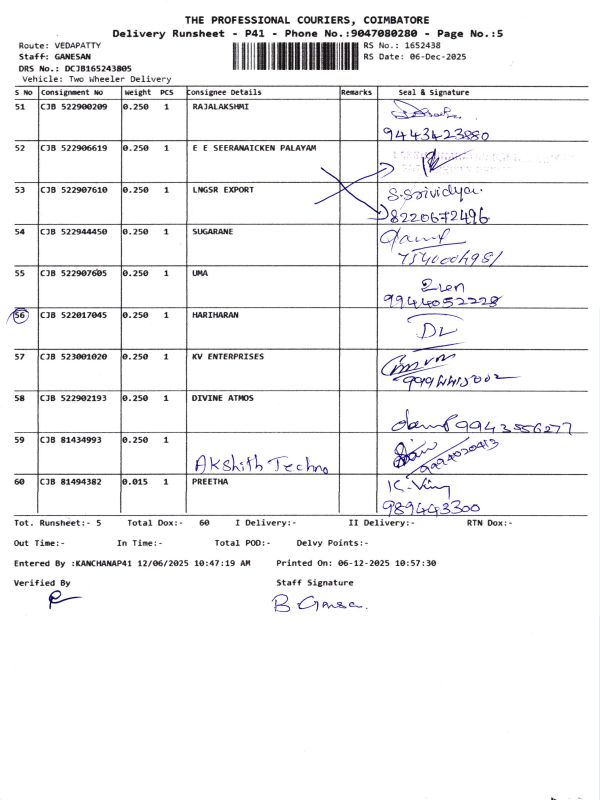 THE PROFESSIONAL COURIERS, COIMBATORE
Delivery Runsheet - P41 - Phone No.:9047080280 - Page No.:5
Route: VEDAPATTY
RS No.: 1652438
Staff: GANESAN
RS Date: 06-Dec-2025
DRS No.: DCJB165243805
Vehicle: Two Wheeler Delivery
S No Consignment No Weight PCS Consignee Details Remarks Seal & Signature
51 CJB 522900209 0.250 1 RAJALAKSHMI
9443423880
52 CJB 522906619 0.250 1 E E SEERANAICKEN PALAYAM
53 CJB 522907610 0.250 1 LNGSR EXPORT S.Srividya.
8220672496
54 CJB 522944450 0.250 1 SUGARANE
55 CJB 522907605 0.250 1 UMA
9944052228
56 CJB 522017045 0.250 1 HARIHARAN
57 CJB 523001020 0.250 1 KV ENTERPRISES
58 CJB 522902193 0.250 1 DIVINE ATMOS
9943556277
59 CJB 81434993 0.250 1
Akshith Techno 9994020413
60 CJB 81494382 0.015 1 PREETHA
989443300
Tot. Runsheet:- 5 Total Dox:- 60 I Delivery:- II Delivery:- RTN Dox:-
Out Time:- In Time:- Total POD:- Delvy Points:-
Entered By :KANCHANAP41 12/06/2025 10:47:19 AM Printed On: 06-12-2025 10:57:30
Verified By Staff Signature